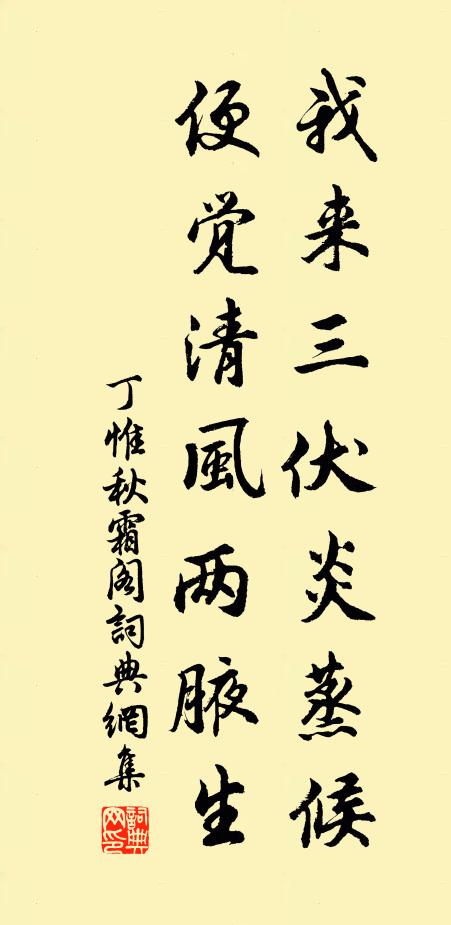 我来三伏炎蒸候
便觉清風两腋生
丁惟秋霜阁詞典網集
詞典网印